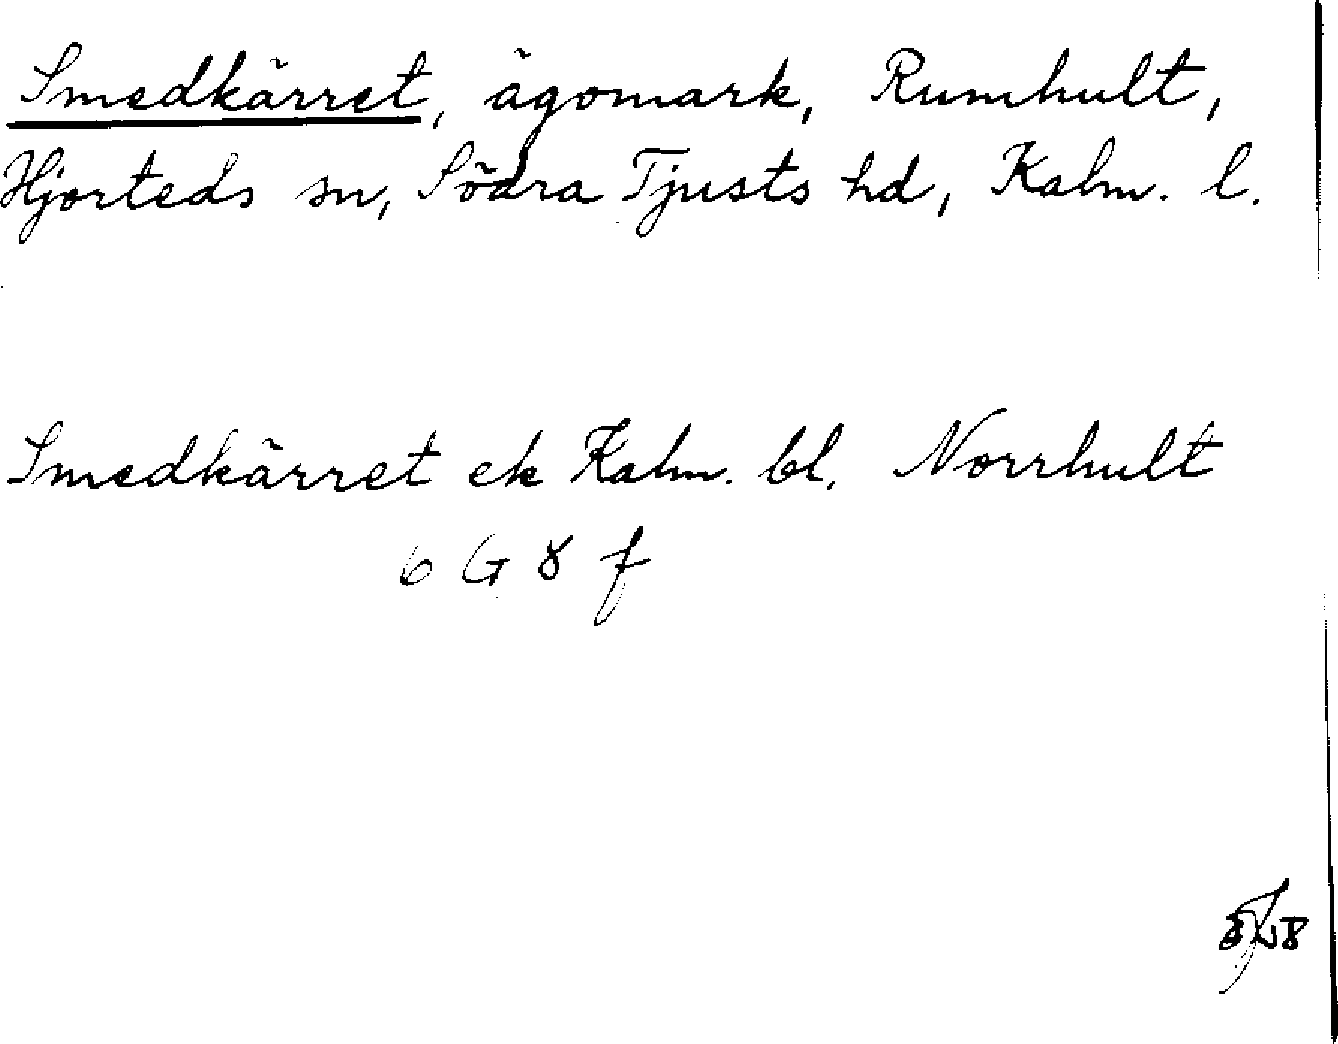 Smedkärret, ägomark, Rumhult,
Hjorteds sn, Södra Tjusts hd, Kalm. l.
Smedkärret ek Kalm. bl. Norrhult
6 G 8 f